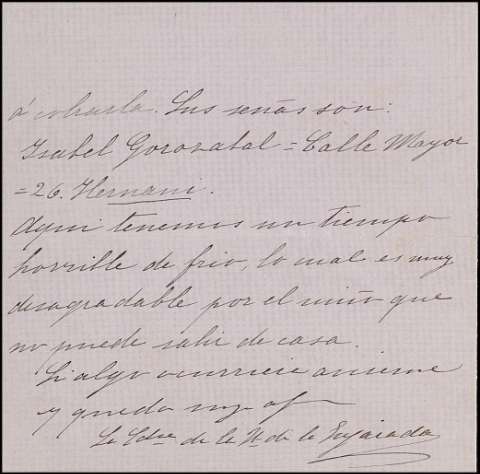 á cobrarla. Sus señas son:
Isabel Goronatal = Calle Mayor
= 26. Hernani.
Aqui tenemos un tiempo
horrible de frio, lo cual es muy
desagradable por el niño que
no puede salir de casa.
Si algo ocurriese aviseme
y queda suya afma
La Cdsa de la Va de la